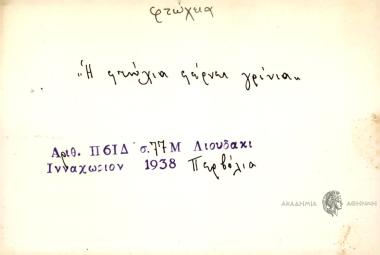 φτώχεια
"Η φτώχια φέρνει γρίνια"
Αριθ. Π6ΙΔ σ.77 Μ Λιουδακι
Ινναχωριον 1938 Περβόλια
ΑΚΑΔΗΜΙΑ ΑΘΗΝΩΝ